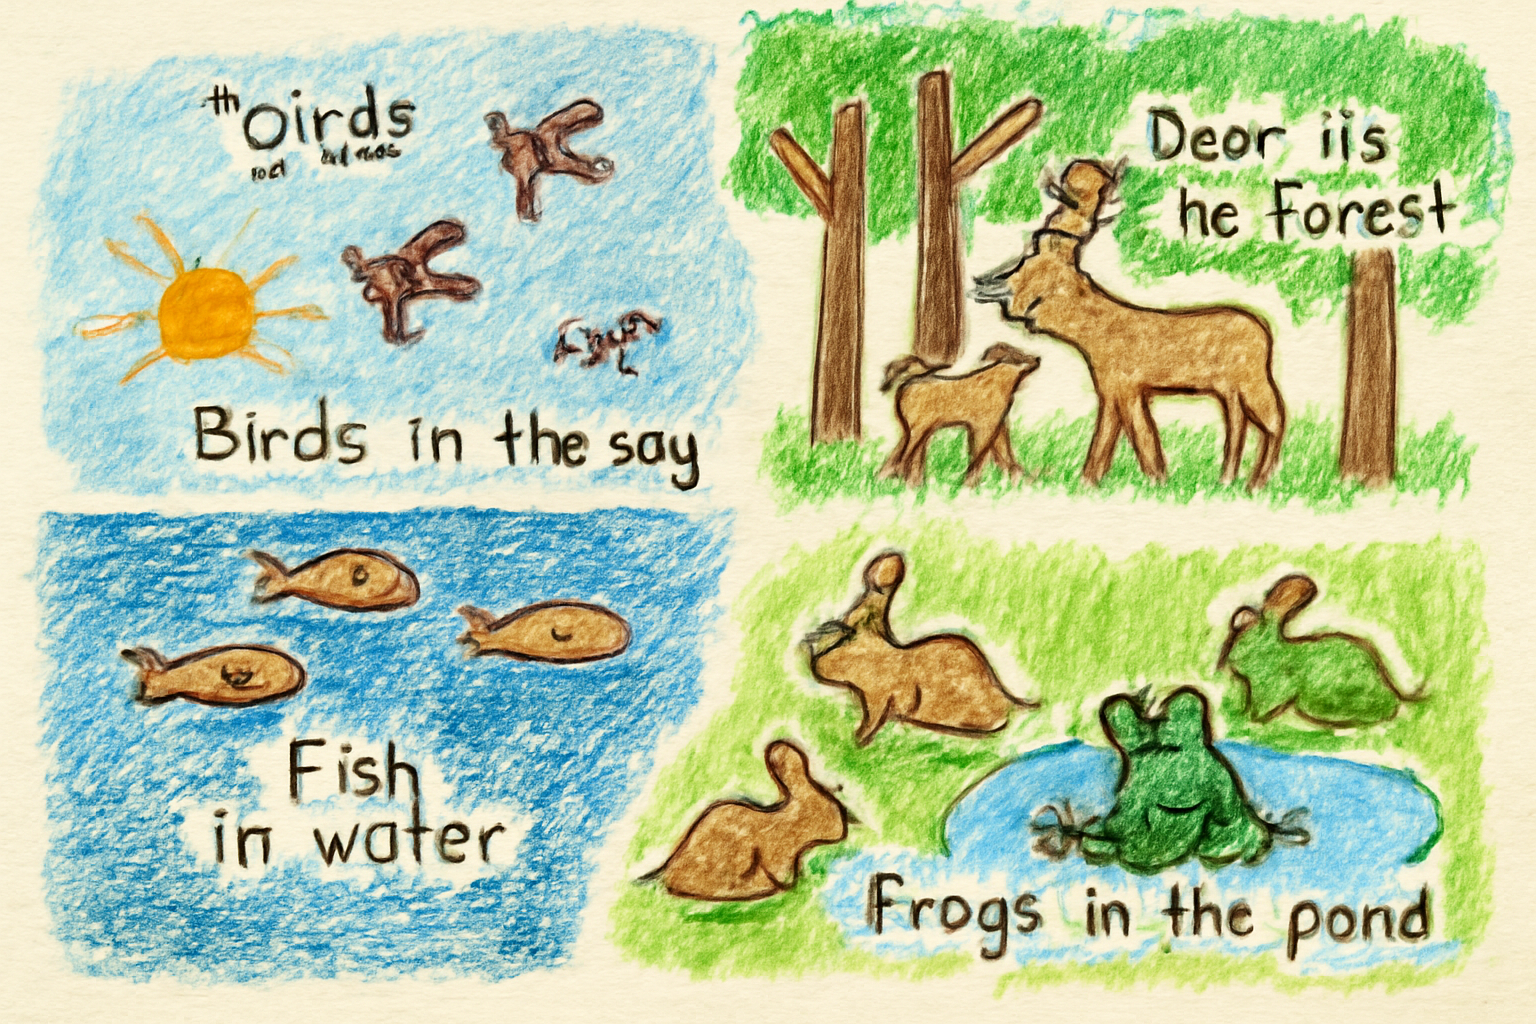 th Oirds
Birds in the say
Deor iis
he Forest
Fish
in water
Frogs in the pond